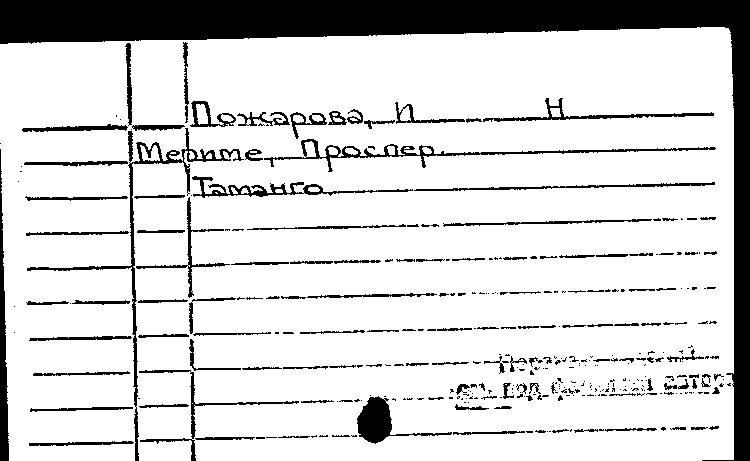 Пожарова, И Н
Мериме, Проспер.
Таманго.
см. под фамилией автора